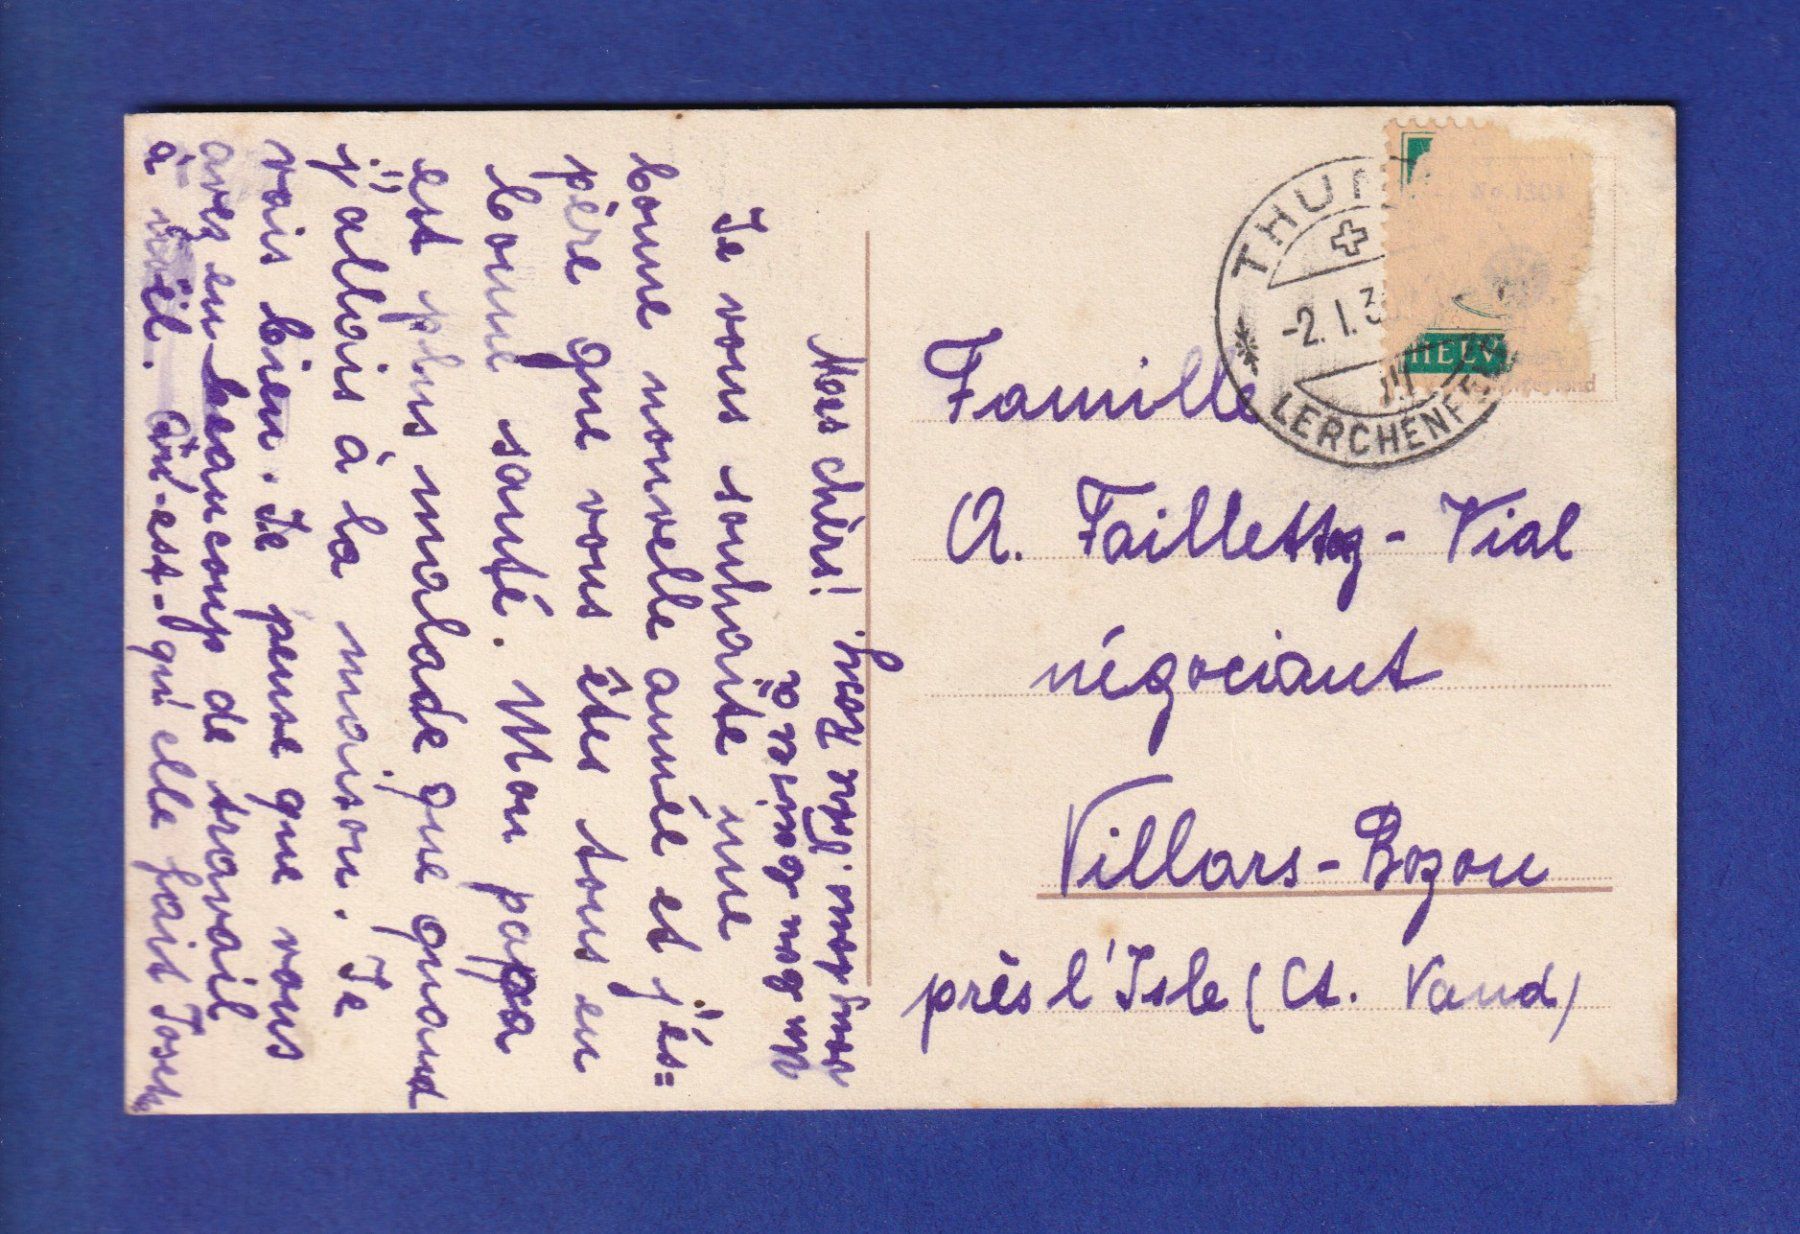 Mes chers!
Je vous souhaite une
bonne nouvelle année et j'és=
père que vous êtes tous en
bonne santé. Mon papa
est plus malade que quand
j'allais à la maison. Je
vais bien. Je pense que vous
avez eu beaucoup de travail
à noël. Qu'est-qu'elle fait
un bon baiser à
vous tous.
THUN
-2.I.3
LERCHENF
HELV
Famille
A. Taillettaz - Vial
négociant
Villars-Bozon
près l'Isle (Ct. Vaud)